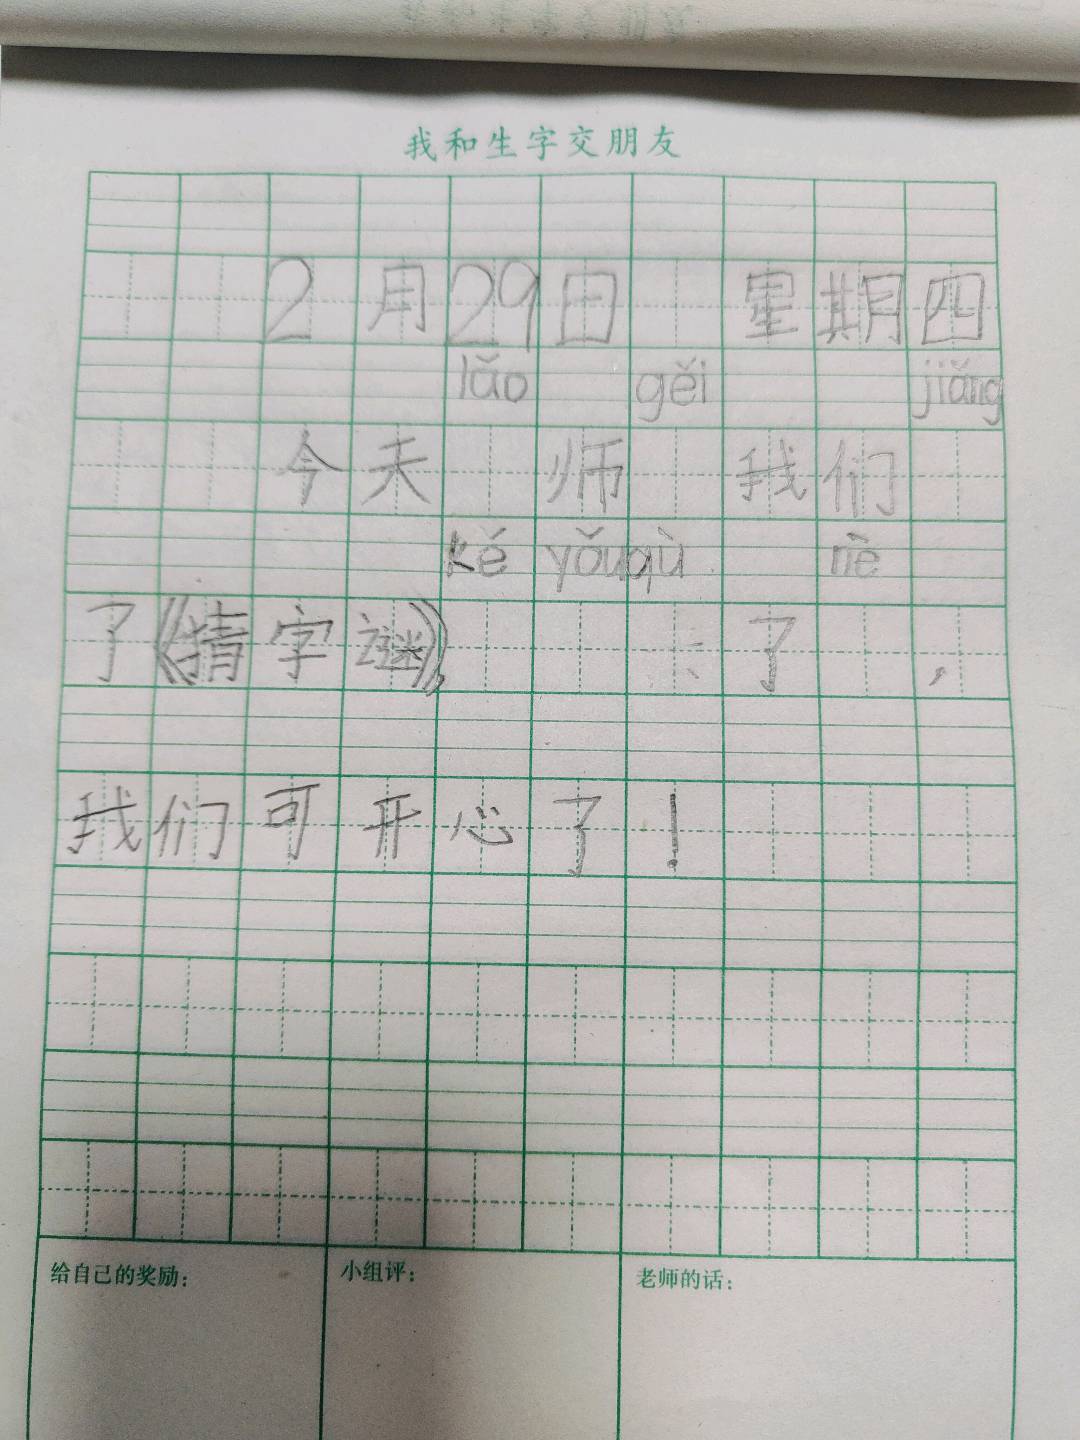 我和生字交朋友
2月29日 星期四
lǎo gěi jiǎng
今天 师 我们
ké yǒuqù nè
了《猜字谜》, 了 ,
我们可开心了！
给自己的奖励：
小组评：
老师的话：